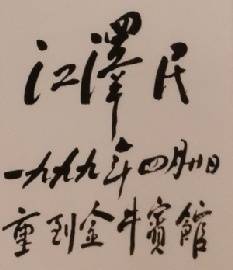 江澤民
一九九九年四月廿日
重到金牛賓館